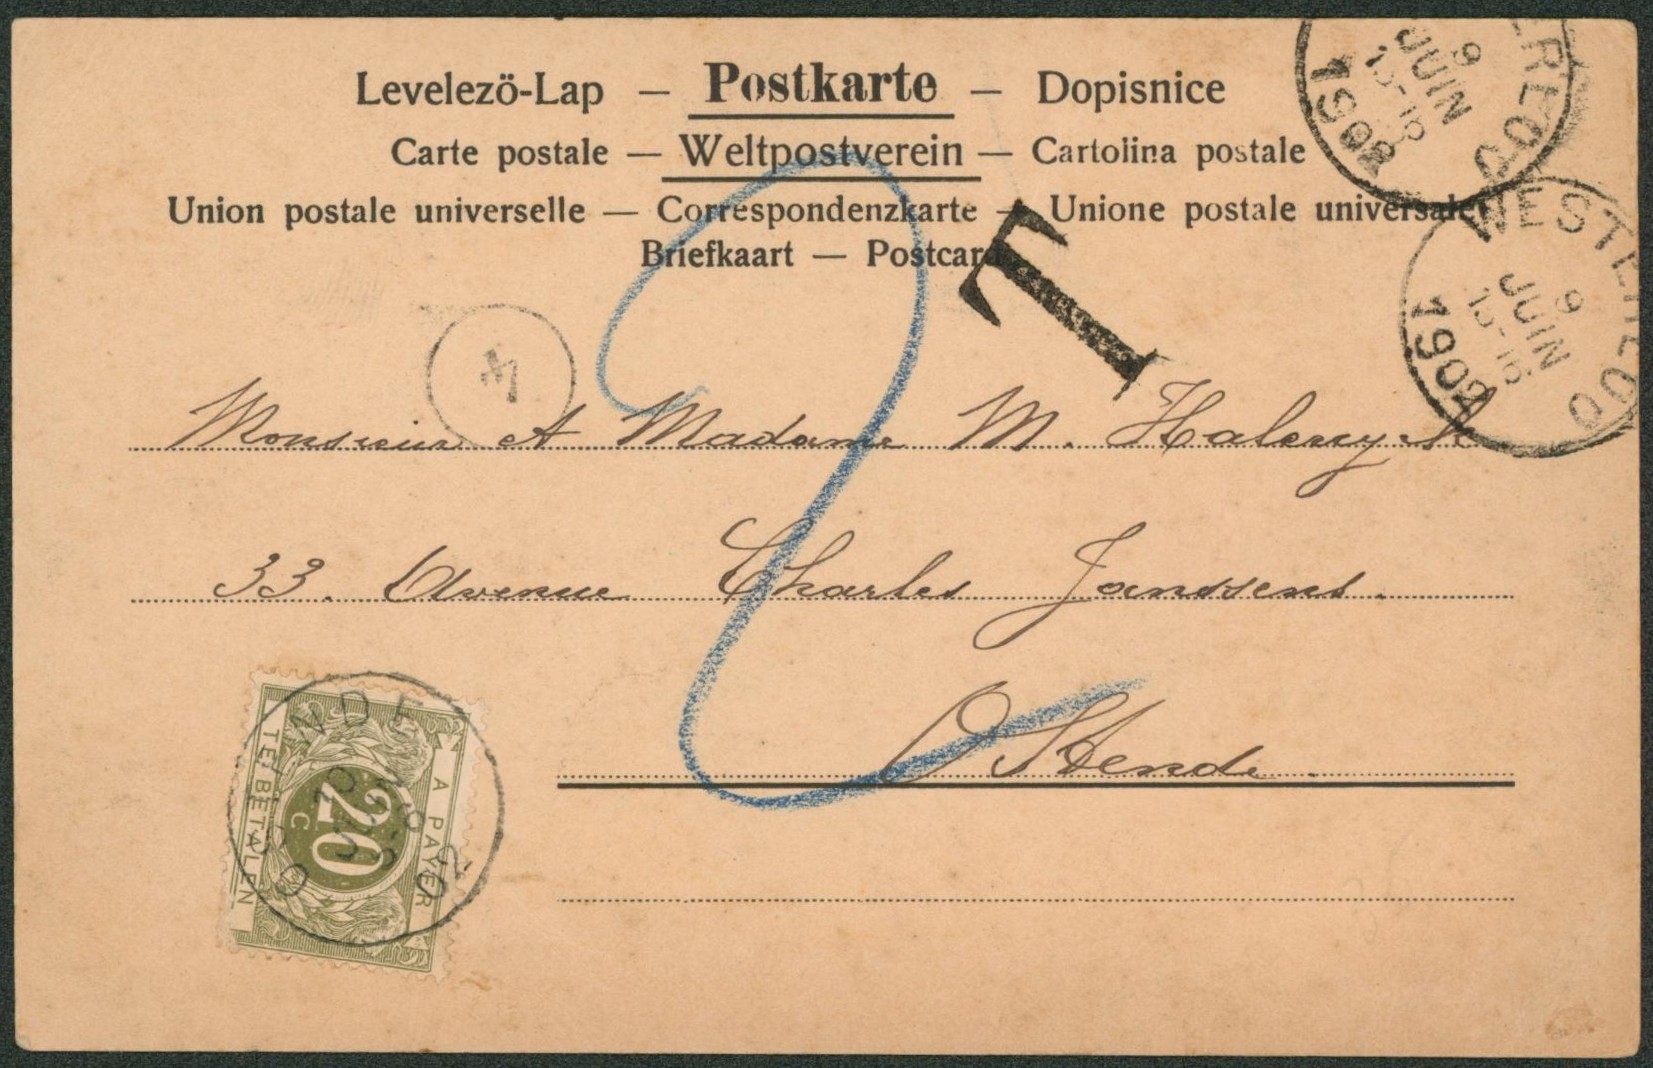 Levelező-Lap — Postkarte — Dopisnice
Carte postale — Weltpostverein — Cartolina postale
Union postale universelle — Correspondenzkarte — Unione postale universale
Briefkaart — Postcard
T
9
JUIN
1902
WESTERLOO
9
JUIN
1902
4
2
Monsieur et Madame M.
33. Avenue Charles Janssens.
Ostende.
OSTENDE
10
JUIN
02
A PAYER
20
C
TE BETALEN